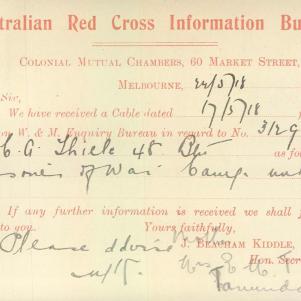 tralian Red Cross Information Bu
COLONIAL MUTUAL CHAMBERS, 60 MARKET STREET,
MELBOURNE, 22/5/18
Sir,
We have received a Cable dated 17/5/18
on W. & M. Enquiry Bureau in regard to No. 3129
C. A. Thiele 48 Btn as fo
soner of War Camp unk
If any further information is received we shall
to you. Yours faithfully,
Please advise J. BEACHAM KIDDLE,
Hon. Secr
Mrs E. M.
Tanunda